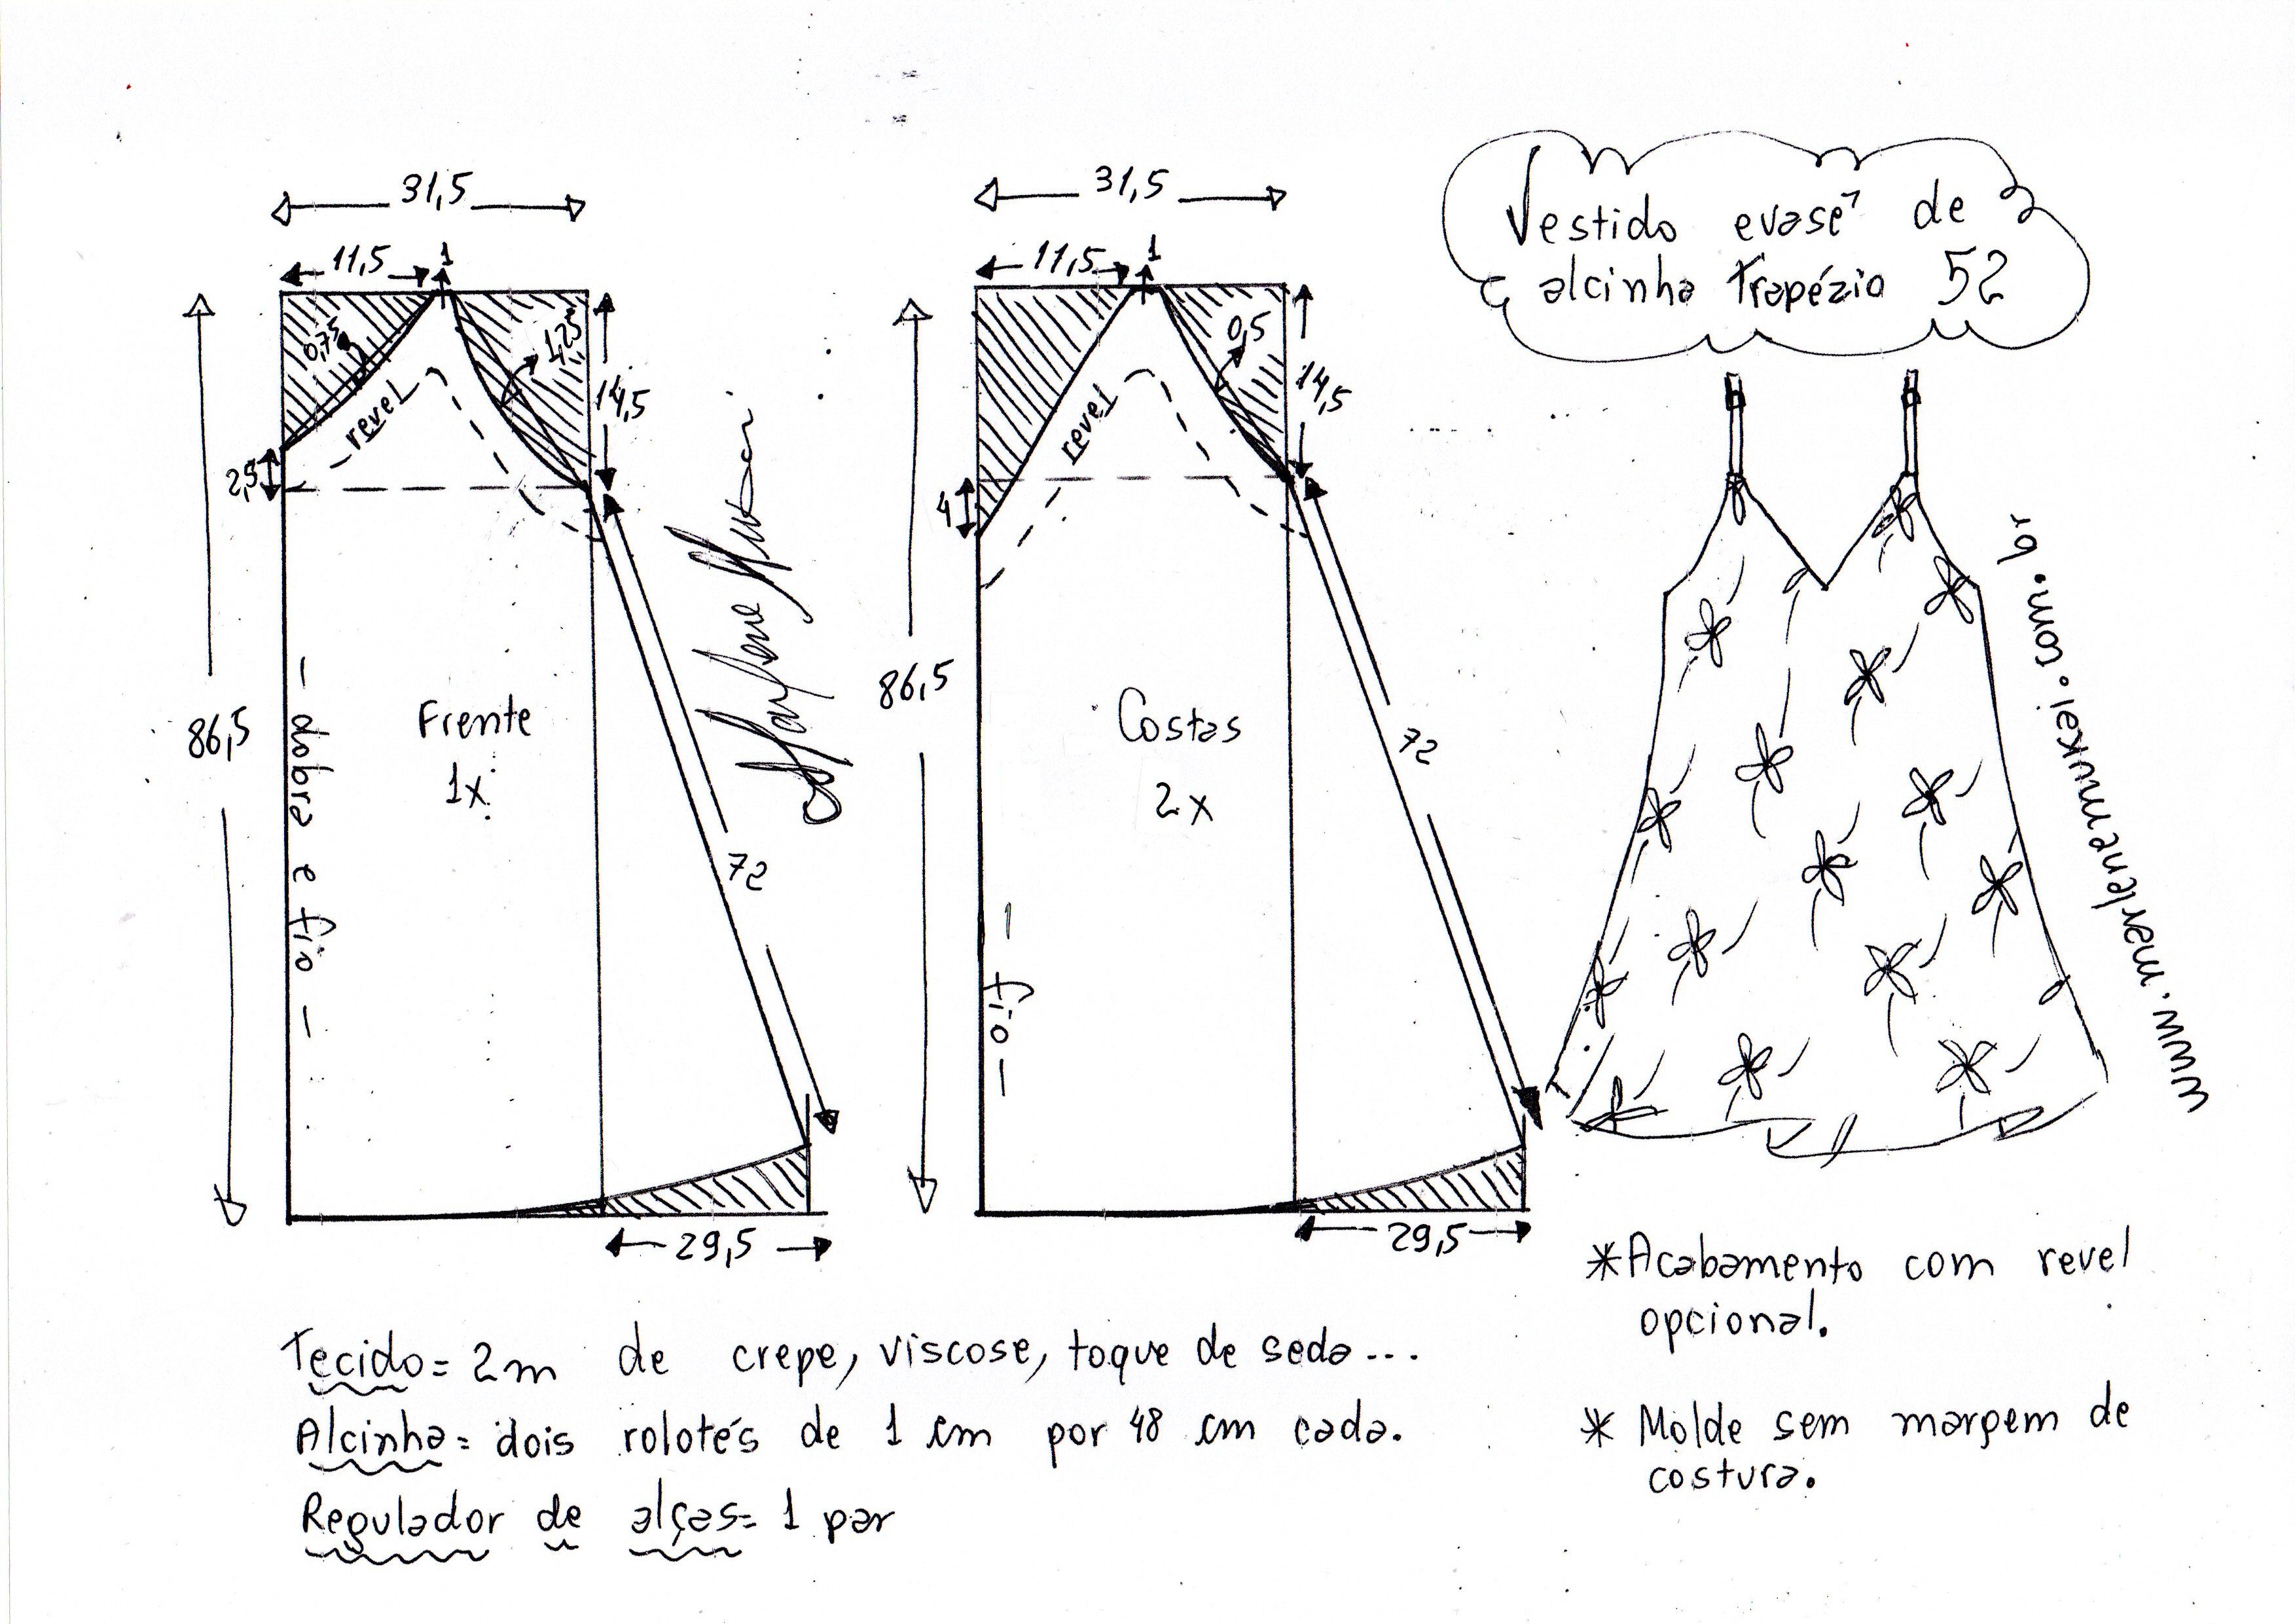 31,5
11,5
1
0,75
1,25
14,5
revel
2,5
86,5
- dobra e fio -
Frente
1x
72
29,5
Marlene Mukai
31,5
11,5
1
0,5
14,5
revel
4
86,5
- fio -
Costas
2x
72
29,5
Vestido evasê de
alcinha Trapézio 52
www.marlenemukai.com.br
Tecido= 2m de crepe, viscose, toque de seda...
Alcinha= dois rolotés de 1 cm por 48 cm cada.
Regulador de alças= 1 par
*Acabamento com revel
opcional.
* Molde sem margem de
costura.